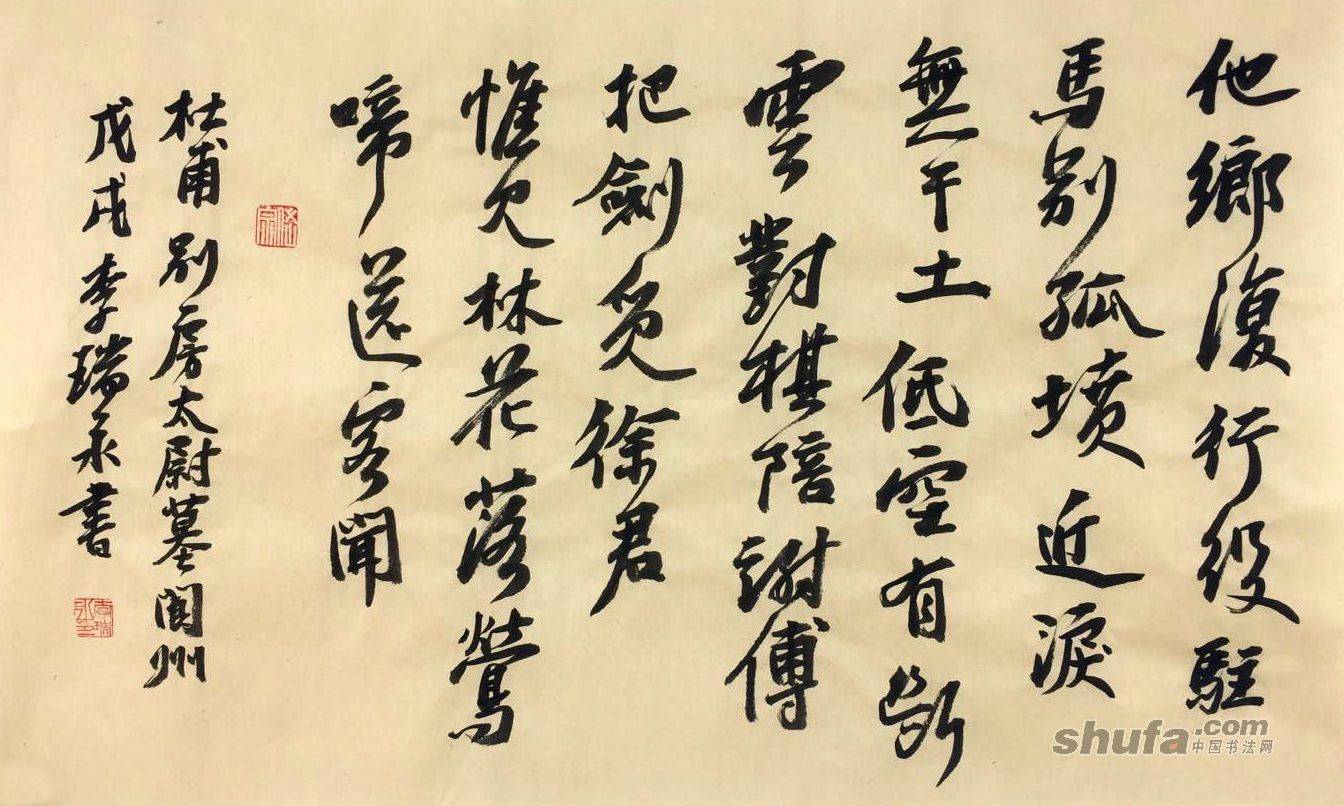 他鄉復行役駐
馬別孤墳近淚
無干土低空有斷
雲對棋陪謝傅
把劍覓徐君
惟欠林花落鶯
啼送客聞
杜甫別房太尉墓閬州
戊戌李瑞永書
shufa.com
中国书法网